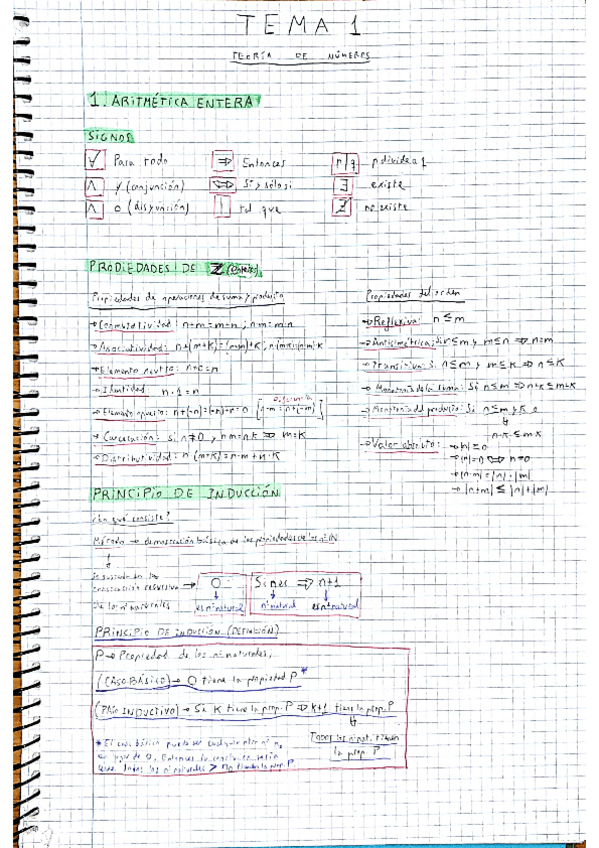 TEMA 1
TEORÍA DE NÚMEROS
1. ARITMÉTICA ENTERA
SIGNOS
∀ Para todo ⇒ Entonces p|q p divide a q
∧ y (conjunción) ⇔ Si y sólo si ∃ existe
∧ o (disyunción) | tal que ∄ no existe
PROPIEDADES DE ℤ (Enteros)
Propiedades de operaciones de suma y producto
→ Conmutatividad: n+m=m+n ; n·m=m·n
→ Asociatividad: n+(m+k)=(n+m)+k ; n(m·k)=(n·m)·k
→ Elemento neutro: n+0=n
→ Identidad n·1=n
→ Elemento opuesto: n+(-n)=(-n)+n=0 [n-m=n+(-m)]
→ Cancelación: si n≠0 y nm=nk ⇒ m=k
→ Distributividad: n(m+k)=n·m+n·k
Propiedades del orden
→ Reflexiva: n≤m
→ Antisimétrica: si n≤m y m≤n ⇒ n=m
→ Transitiva: Si n≤m y m≤k ⇒ n≤k
→ Monotonía de la suma: Si n≤m ⇒ n+k≤m+k
→ Monotonía del producto: Si n≤m y k≥0
⇓
n·k≤m·k
→ Valor absoluto: → |n|≥0
→ |n|=0 ⇔ n=0
→ |n·m|=|n|·|m|
→ |n+m|≤|n|+|m|
PRINCIPIO DE INDUCCIÓN
¿En qué consiste?
Método → demostración básica de las propiedades de los nº ℕ
Se sustenta en la
construcción recursiva → 0 Si n es ⇒ n+1
de los nº naturales es nº natural nº natural es nº natural
PRINCIPIO DE INDUCCIÓN (DEFINICIÓN)
P → Propiedad de los nº naturales,
(CASO BÁSICO) → 0 tiene la propiedad P *
(PASO INDUCTIVO) → Si k tiene la prop. P ⇒ k+1 tiene la prop. P
⇓
Todos los nº nat. tienen
la prop. P
* El caso básico puede ser cualquier otro nº n₀
en lugar de 0. Entonces la conclusión sería
que todos los nº naturales ≥ n₀ tienen la prop. P.